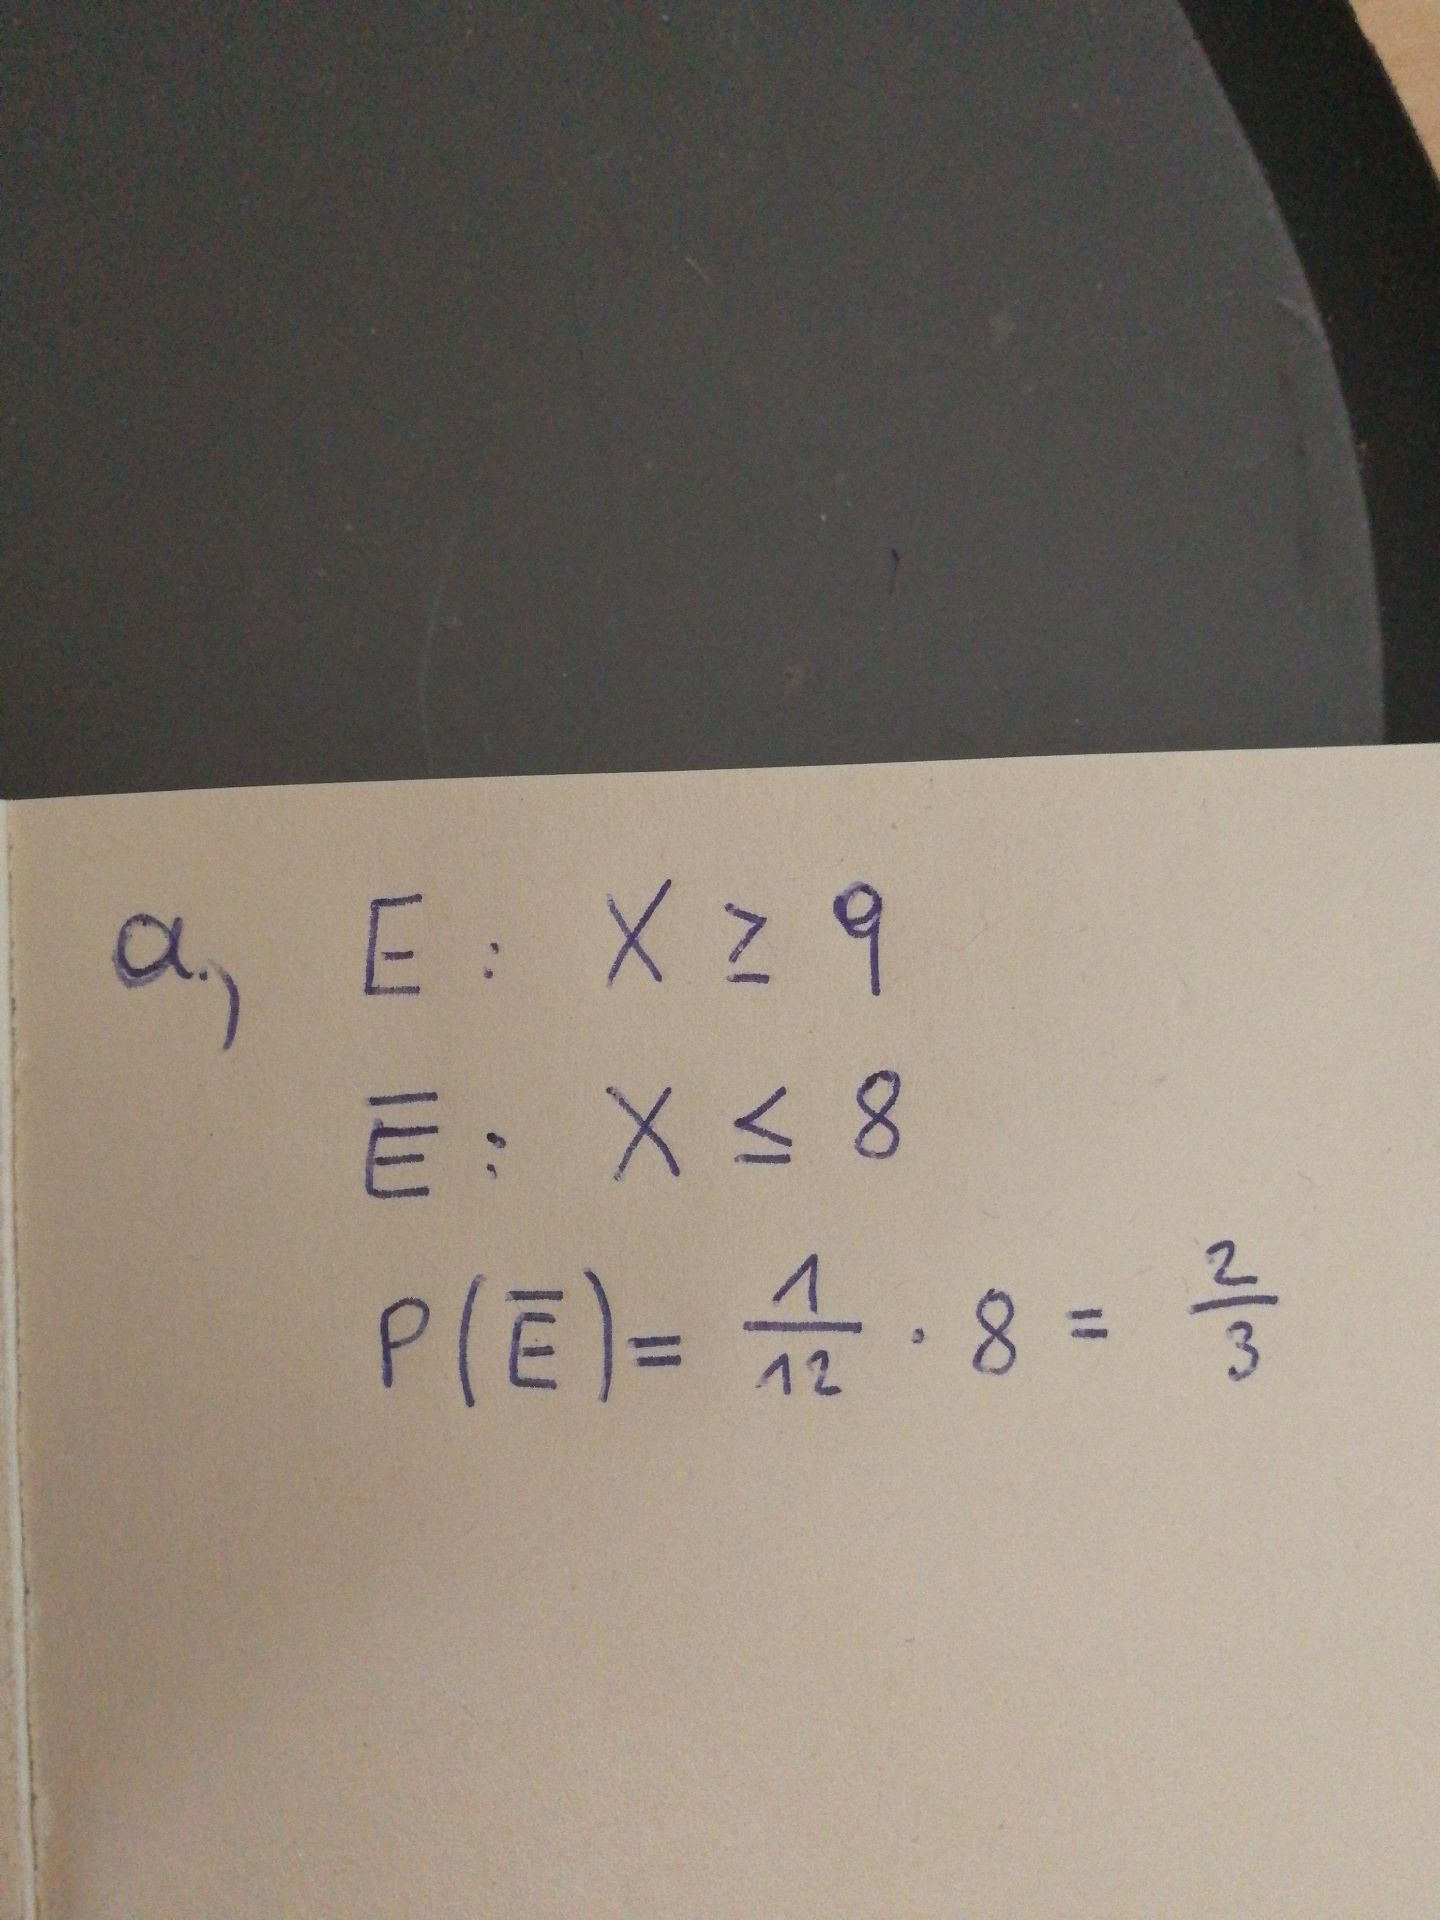 a.) E: X ≥ 9
E̅: X ≤ 8
P(E̅) = 1/12 · 8 = 2/3